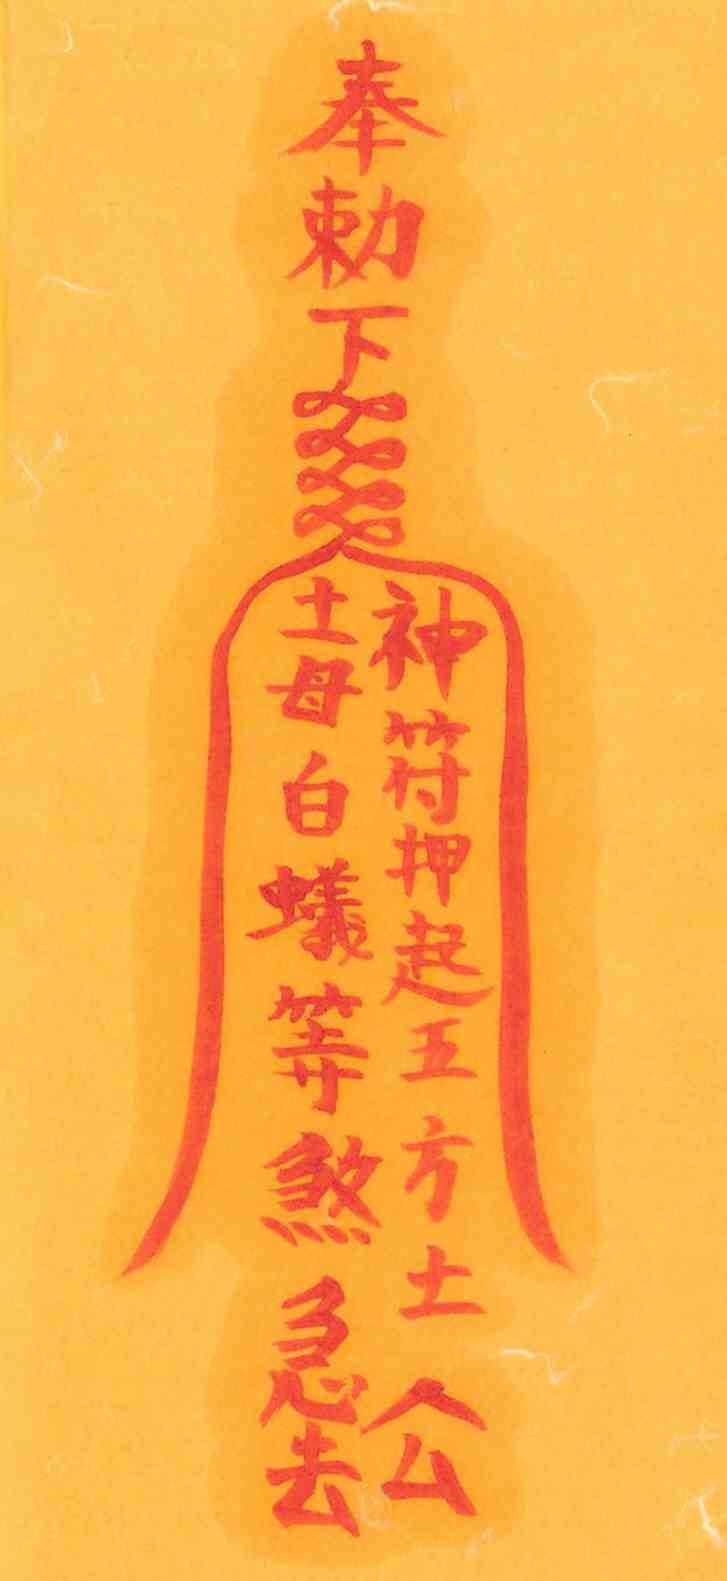 奉勅下
神符押起五方土公
土母白蟻等煞急去